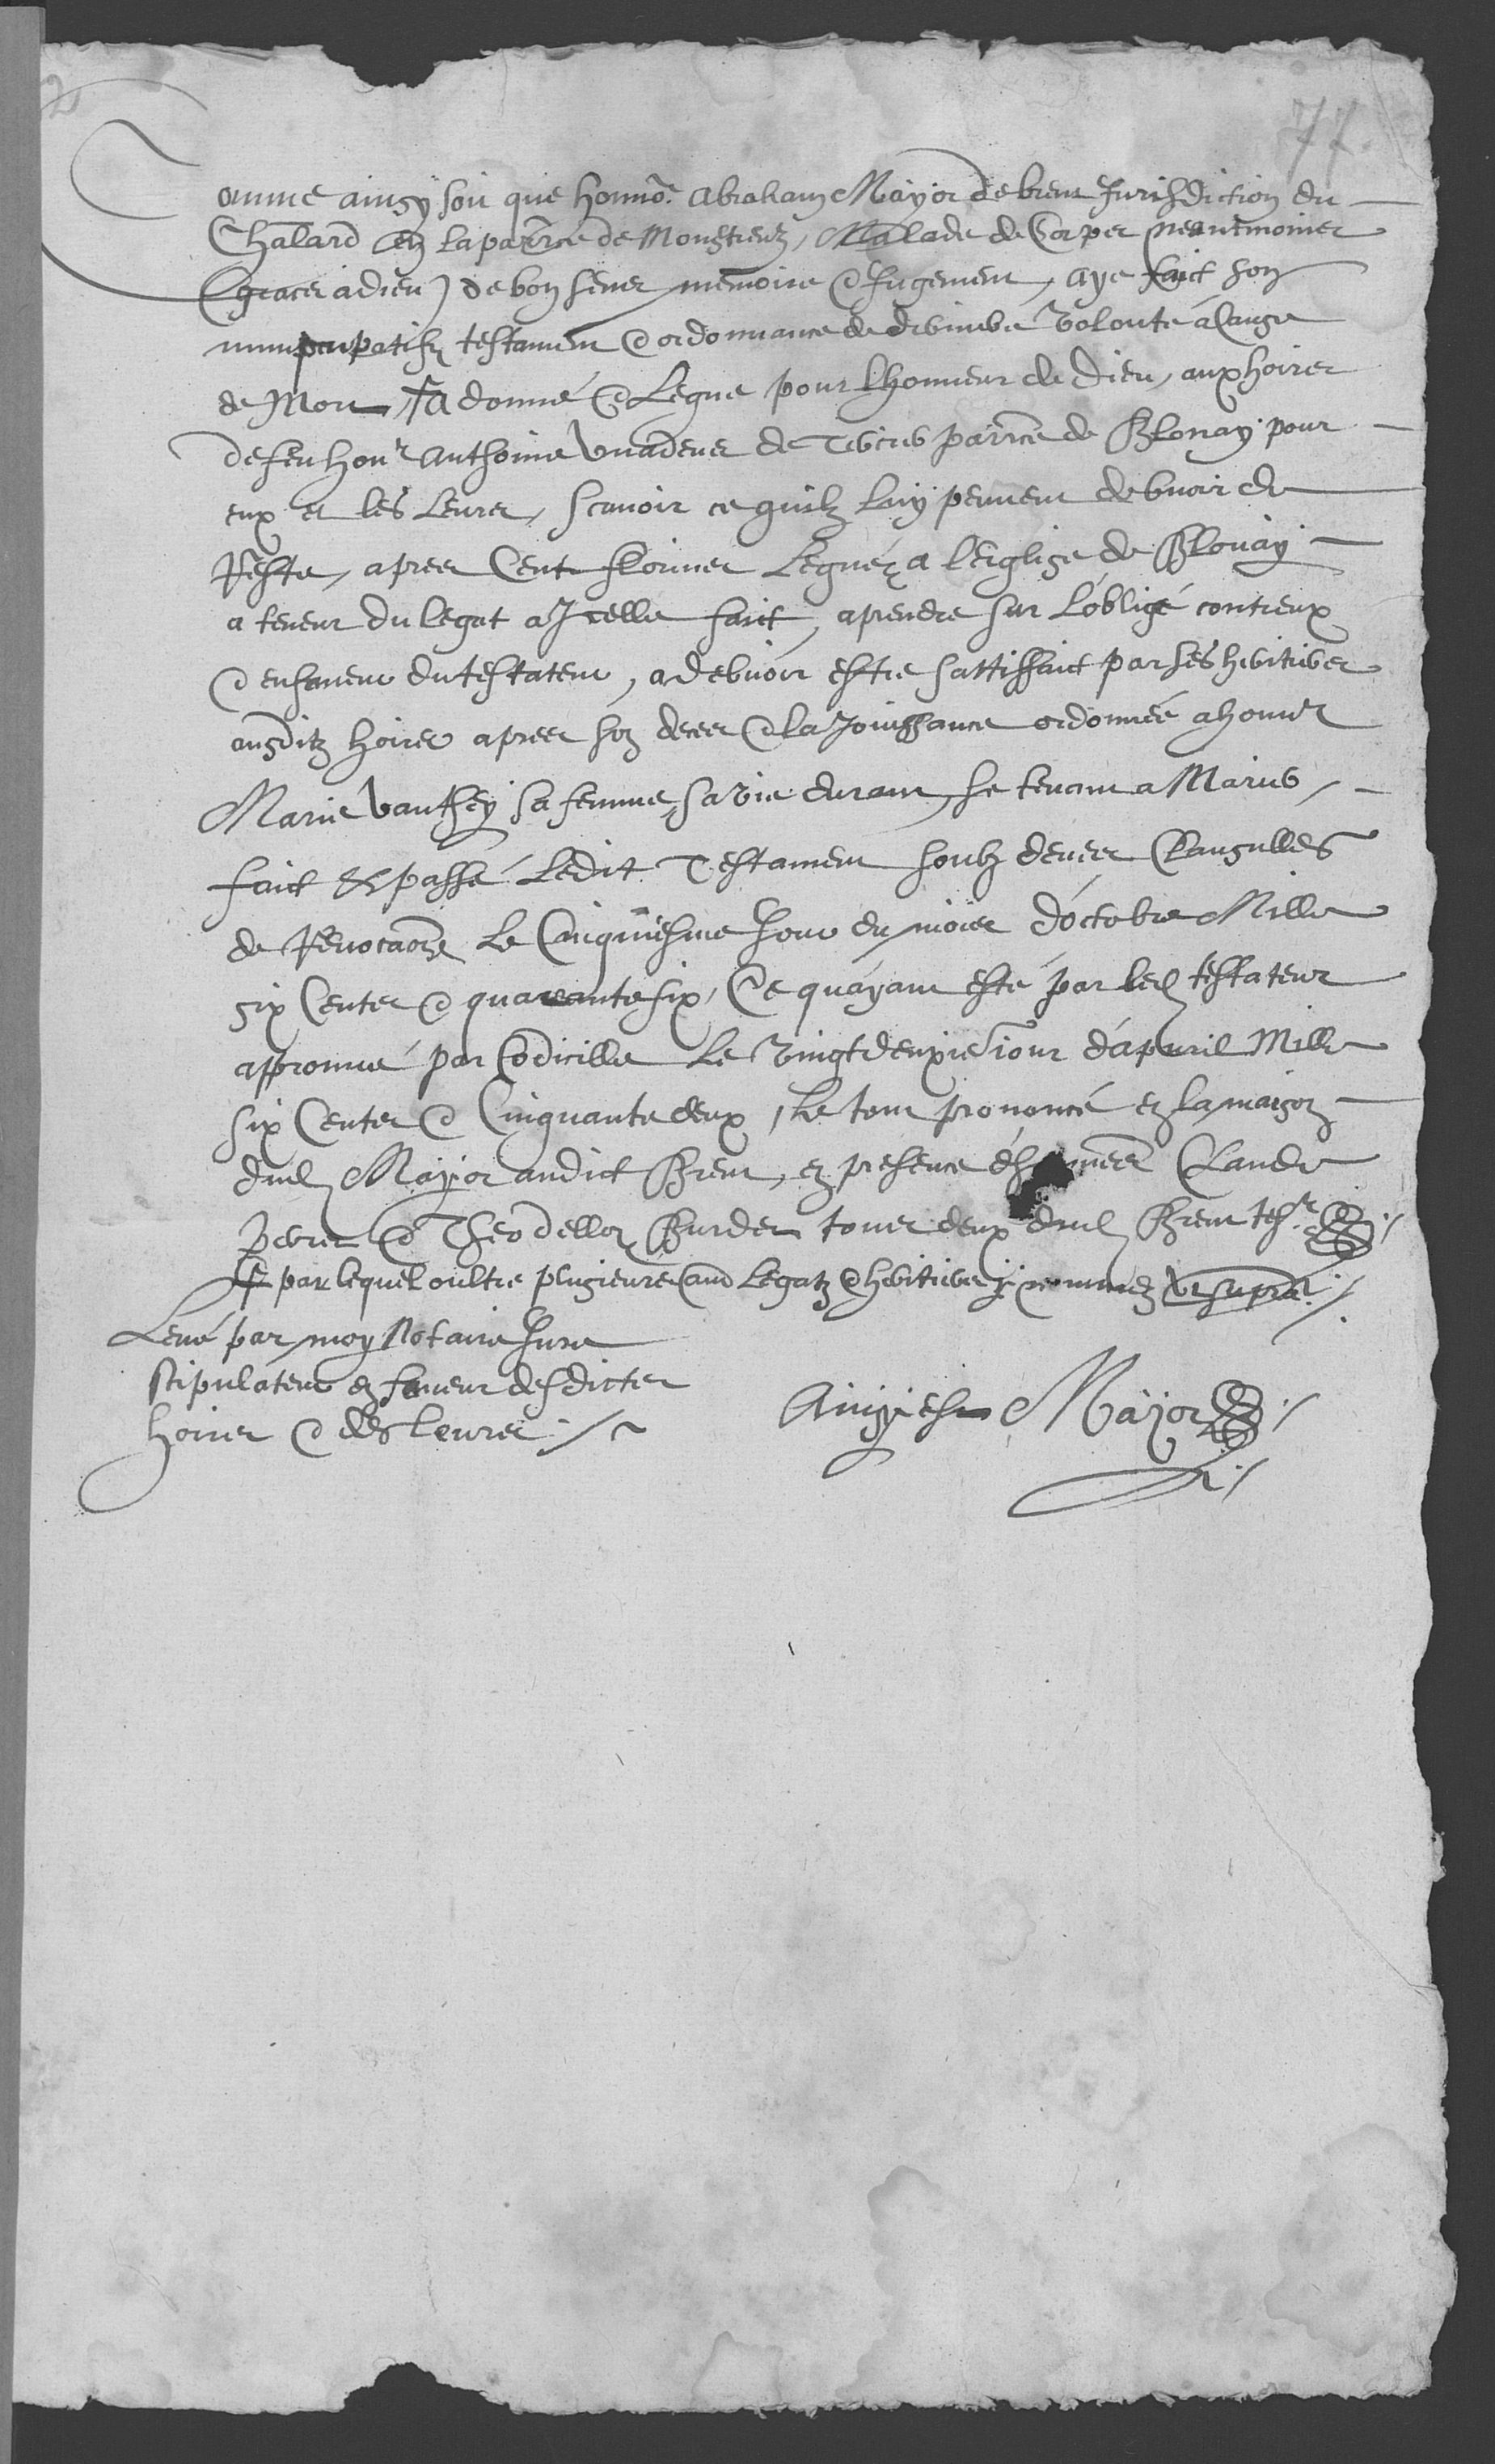 77.
Comme ainsy soit que honno. Abraham Mayor de brent Jurisdiction du
Chalard en la parrce de Monstreux, Malade de Corps neantmoings
(graces a dieu) de bon sens memoire & Jugement, aye faict son
nuncupatifz testament & ordonnance de derniere volonte a Cause
de Mort, ꝉ a donné & Legue pour lhonneur de Dieu, aux hoires
de feu honr Anthoine de parrce de Blonay pour
eux et les Leurs, scavoir ce quilz luy peuvent debvoir de
Reste, apres Cent florins Leguéz a lesglise de Blonay
a teneur du legat a Jcelle faict, a prendre sur lobligé contreux
& en faveur du testateur, a debvoir estre sattisfaict par ses heritiers
ausditz hoires apres son deces & la Jouissance ordonnée a honnr
Marie Vauthey sa femme, sa vie durant, se tenant a Marius
faict & passé Ledit Testament soubz deues Clausulles
de Revocaone Le Cinquiesme Jour du mois d'octobre Mille
six Cents & quarante six, Ce quayant esté par led testateur
approuué par Codicille Le Vingt deuxie jour d'apvril Mille
six Cents & Cinquante deux, Le tout prononcé en la maison
dud Mayor audict Brent, en presence Claude
& Burdet tous deux dud Brent
ꝉ par lequel oultre plusieurs aud Legatz & heritiers y nommez vt supra
Levé par moy Notaire Jure
stipulateur en faveur desdictes
hoires & des leurs
Ainsy est Mayor